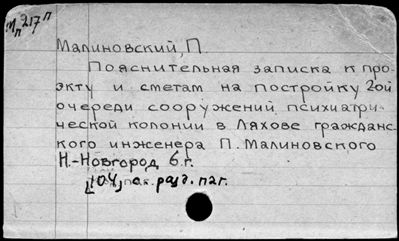 217п
Малиновский, П.
Пояснительная записка к про-
экту и сметам на постройку 2ой
очереди сооружений психиатри-
ческой колонии в Ляхове гражданс-
кого инженера П. Малиновского
Н.-Новгород б. г.
104, разд. паг.